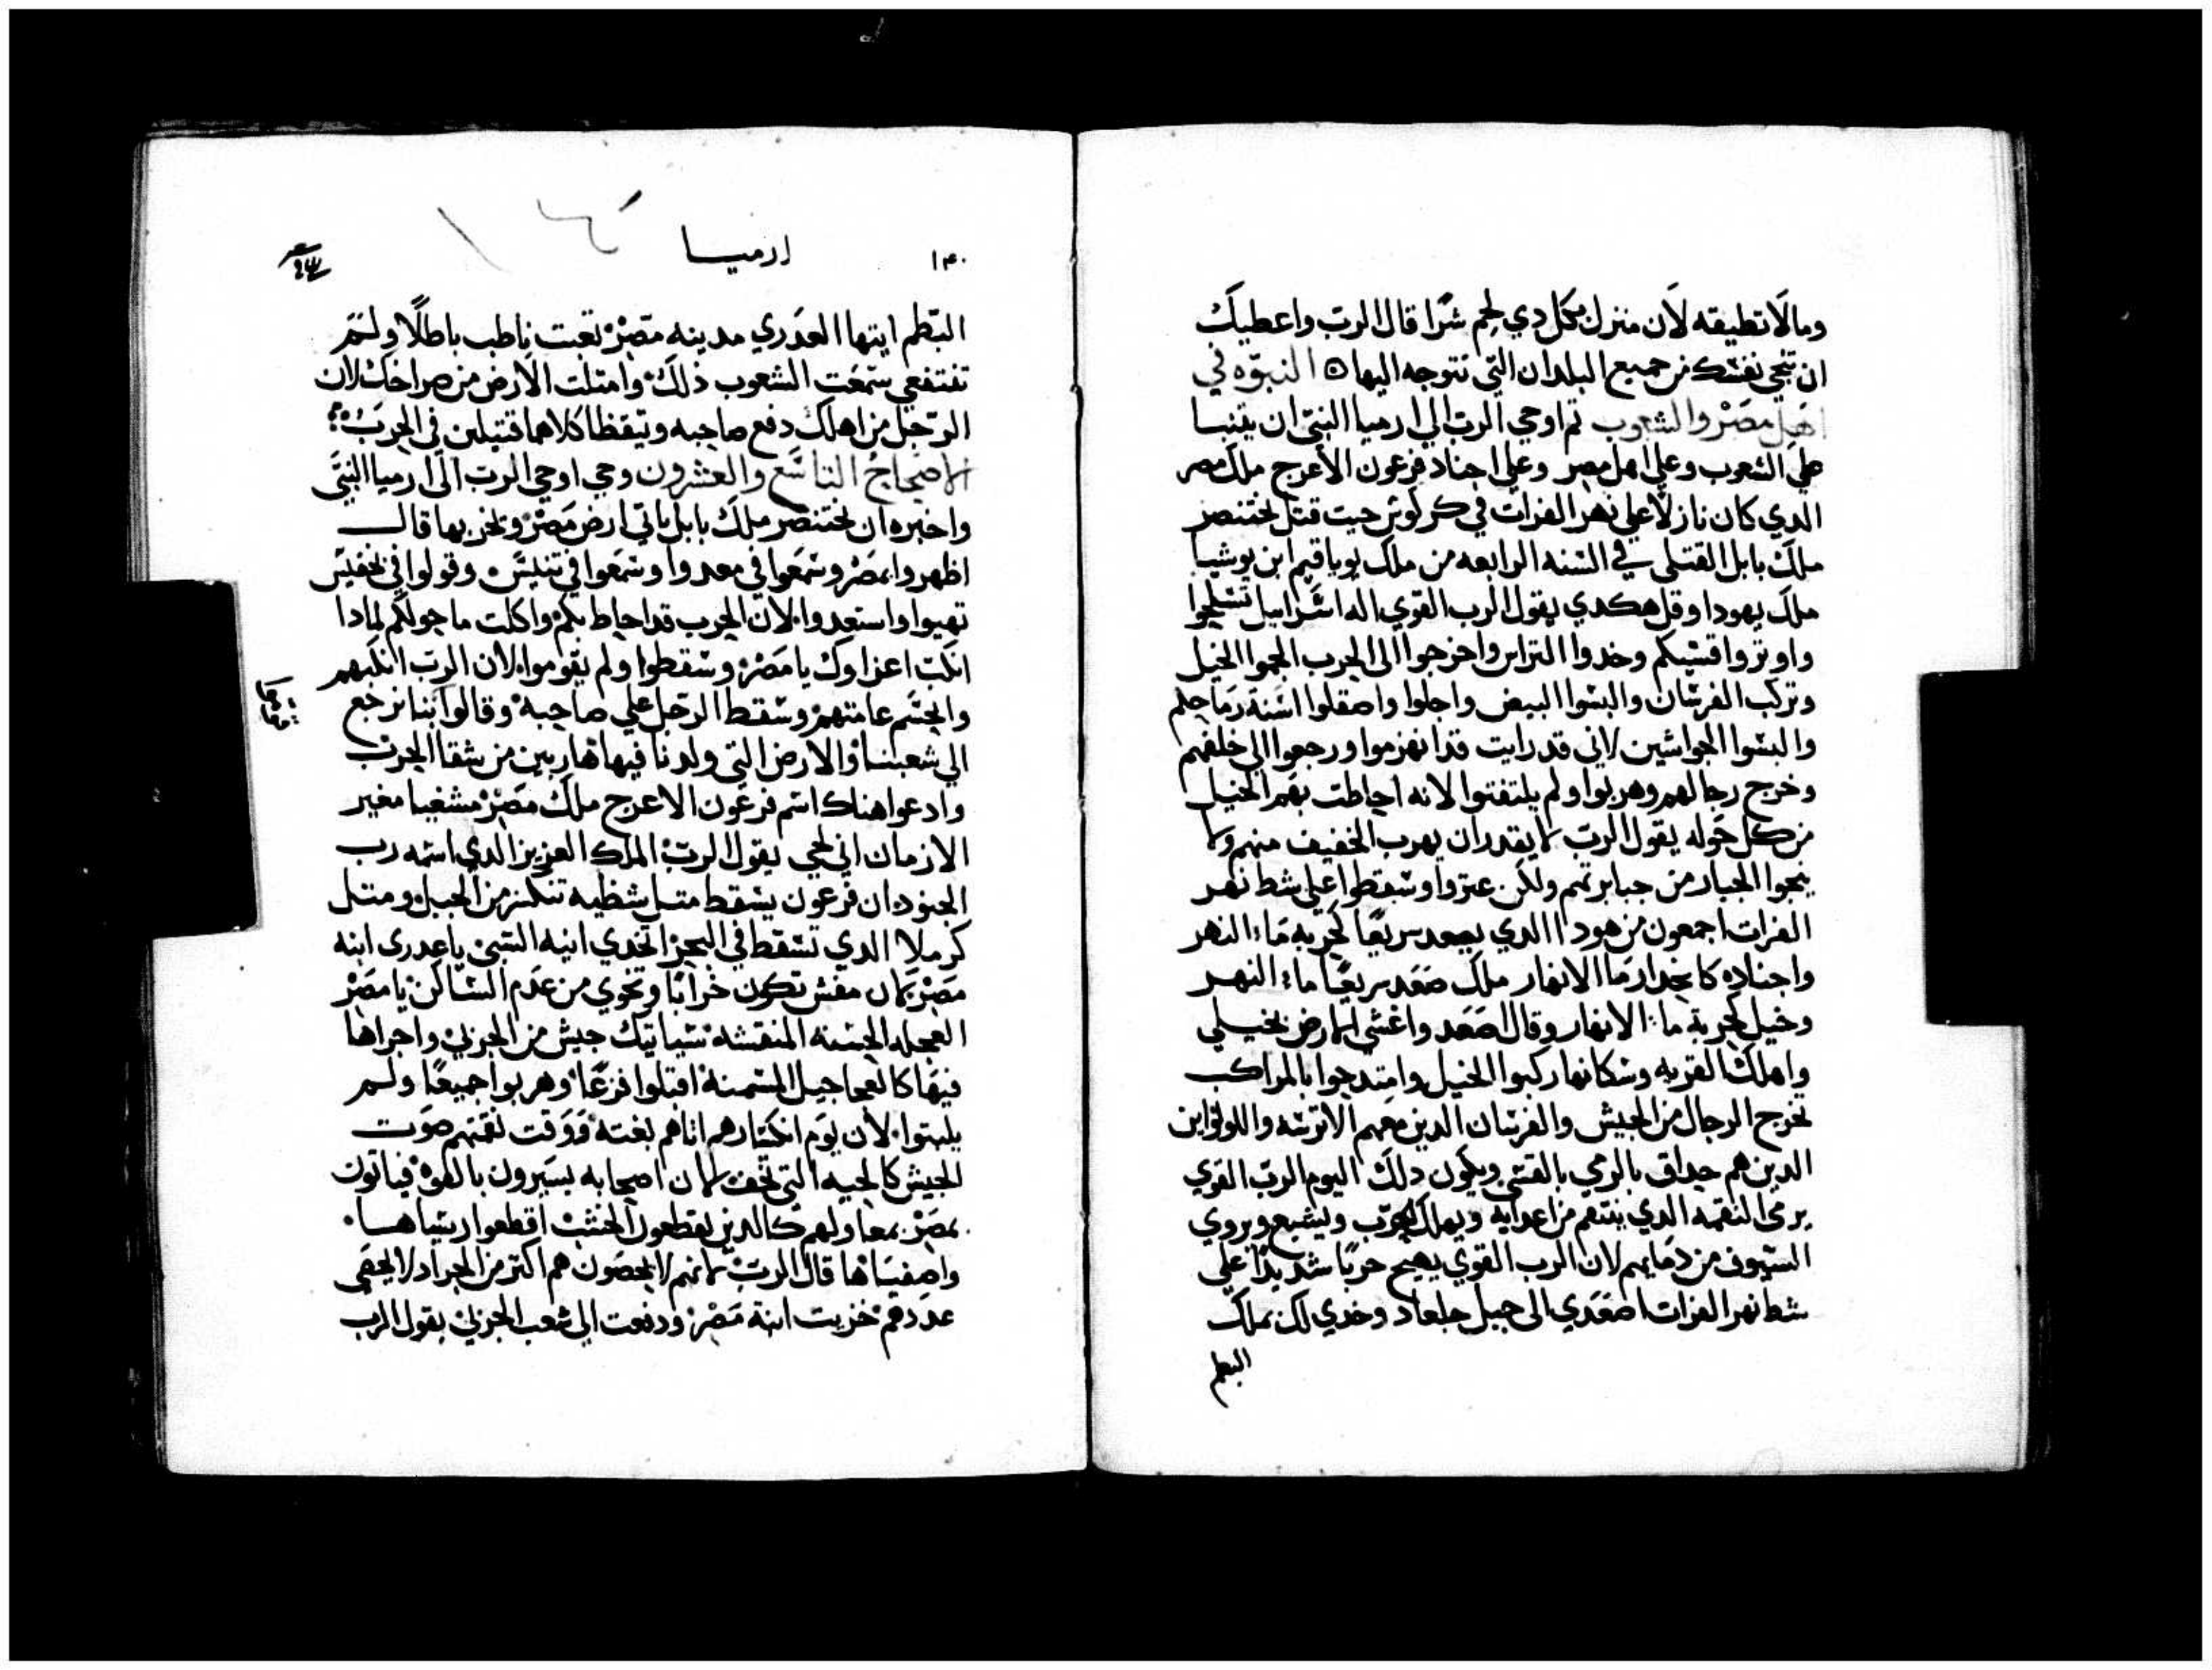 ومالا تطيقه لان منزل بكل دي لحم شرا قال الرب واعطيك
ان تنجي نفسك من جميع البلدان التي تتوجه اليها ه النبوه في
اهل مصر والشعوب تم اوحي الرب الي ارميا النبي ان يتنبا
علي الشعوب وعلي اهل مصر وعلي اجناد فرعون الاعرج ملك مصر
الدي كان نازلا علي نهر الفرات في كركوش حيت قتل بختنصر
ملك بابل القتلي في السنه الرابعه من ملك يوياقيم ابن يوشيا
ملك يهودا وقل هكدي يقول الرب القوي اله اسراييل تسلحوا
واوتروا قسيكم وخدوا التراس واخرجوا الي الحرب الجموا الخيل
وتركب الفرسان والبسوا البيض واجلوا واصقلوا اسنة رماحكم
والبسوا الجواشين لاني قد رايت قد انهزموا ورجعوا الي خلفهم
وخرج رجالهم وهربوا ولم يلتفتوا لانه احاطت بهم الخيل
من كل حوله يقول الرب لا يقدر ان يهرب الخفيف منهم ولا
ينجوا الجبار من جبابرتهم ولكن عتروا وسقطوا علي شط نهر
الفرات اجمعون من هودا الدي يصعد سريعا كجرية ماء النهر
واجناده كانحدار ما الانهار ملك صعد سريعا ماء النهر
وخيل كجرية ماء الانهار وقال اصعد واغشي الارض بخيلي
واهلك القريه وسكانها اركبوا الخيل وامتدحوا بالمراكب
تخرج الرجال من الجيش والفرسان الدين معهم الاترسه واللودانين
الدين هم حداق بالرمي بالقسي ويكون دلك اليوم الرب القوي
يرمي النقمه الدي ينتقم من اعدايه ويهلك الحرب ويشبع ويروي
السيوف من دمايهم لان الرب القوي يهيج حربا شديدا علي
شط نهر الفرات اصعدي الي جبل جلعاد وخدي لك بملك
البطم
١٣٠ ارميا
البطم ايتها العدري مدينه مصر تعبت باطب باطلا ولم
تنتفعي سمعت الشعوب ذلك وامتلت الارض من صراخك لان
الرجل من اهلك دفع صاحبه وتيقظا كلاهما قتيلين في الحرب
الاصحاح التاسع والعشرون وحي اوحي الرب الي ارميا النبي
واخبره ان بختنصر ملك بابل ياتي ارض مصر ويخربها قال
اظهروا بمصر وسمعوا في معدوا وسمعوا في تنيس وقولوا في تحفيس
تهيوا واستعدوا لان الحرب قد احاط بكم واكلت ما حولكم لمادا
انكت اعزاوك يا مصر وسقطوا ولم يقوموا لان الرب انكبهم
والجسم عامتهم وسقط الرجل علي صاحبه وقالوا بنا نرجع
الي شعبنا والارض التي ولدنا فيها هاربين من شقا الحرب
وادعوا هناك اسم فرعون الاعرج ملك مصر مشغبا مغير
الازمان اني لحي يقول الرب الملك العزيز الدي اسمه رب
الجنود ان فرعون يسقط متل شظيه تنكسر من الجبل ومتل
كرملا الدي تسقط في البحر اتخدي انيه السبي ياعدري ابنه
مصر لان مفس تكون خرابا وتخوي من عدم الساكن يا مصر
العجله الحسنه المنقشه سياتيك جيش من الجربي واجراها
فيها كالعجاجيل المسمنه اقبلوا فزعا وهربوا جميعا ولم
يلبتوا لان يوم انكسارهم اتاهم بغته ووقت نقمتهم صوت
الجيش كالحيه التي تخف لان اصحابه يسيرون بالقوه فياتون
بمصر بمعاولهم كالدين يقطعون الخشب اقطعوا ريساها
واصفياها قال الرب لانهم لا يحصون هم اكتر من الجراد لا يحصي
عددهم خزيت ابنة مصر ودفعت الي شعب الجربي يقول الرب